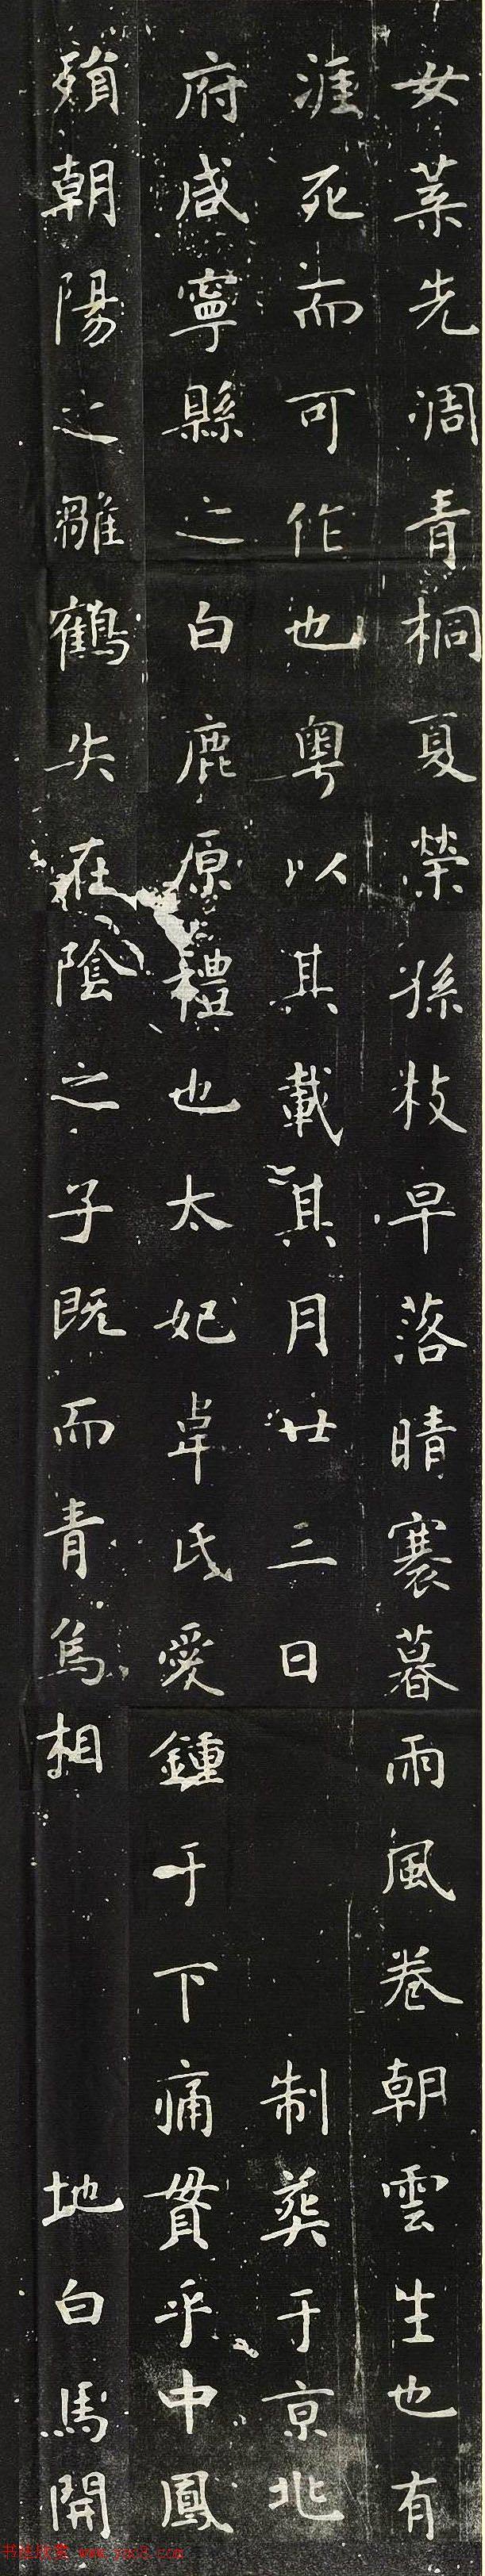 女葉先凋青桐夏榮孫枝早落晴褰暮雨風卷朝雲生也有
涯死而可作也粤以其載其月廿三日 制葬于京兆
府咸寧縣之白鹿原禮也太妃韋氏愛鍾于下痛貫乎中鳳
殞朝陽之雛鶴失在陰之子既而青烏相 地白馬開
www.yac8.com